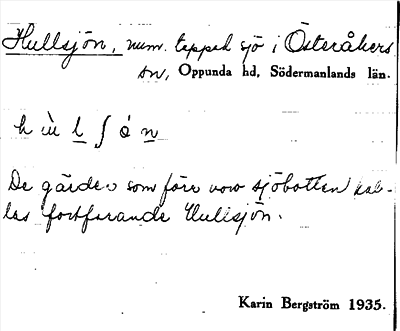 Hullsjön, num. tappad sjö i Österåkers
sn, Oppunda hd, Södermanlands län.
h ù l ʃ ö́ n
De gärden som förr voro sjöbotten kal-
las fortfarande Hullsjön.
Karin Bergström 1935.